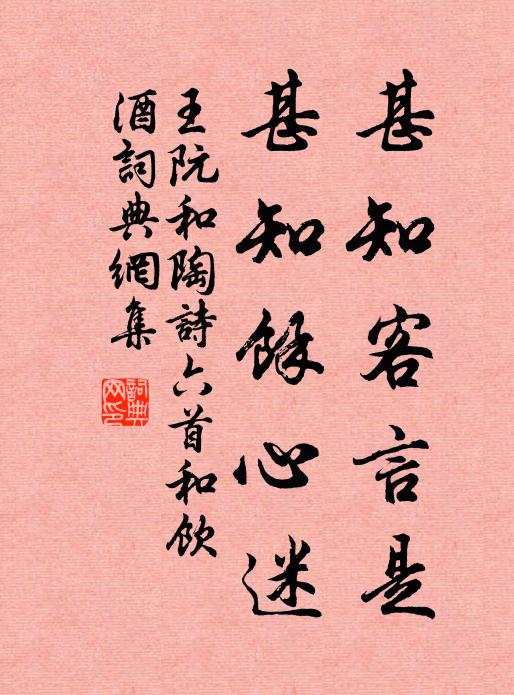 甚知客言是
甚知餘心迷
王阮和陶詩六首和飲
酒詞典網集
詞典
网印